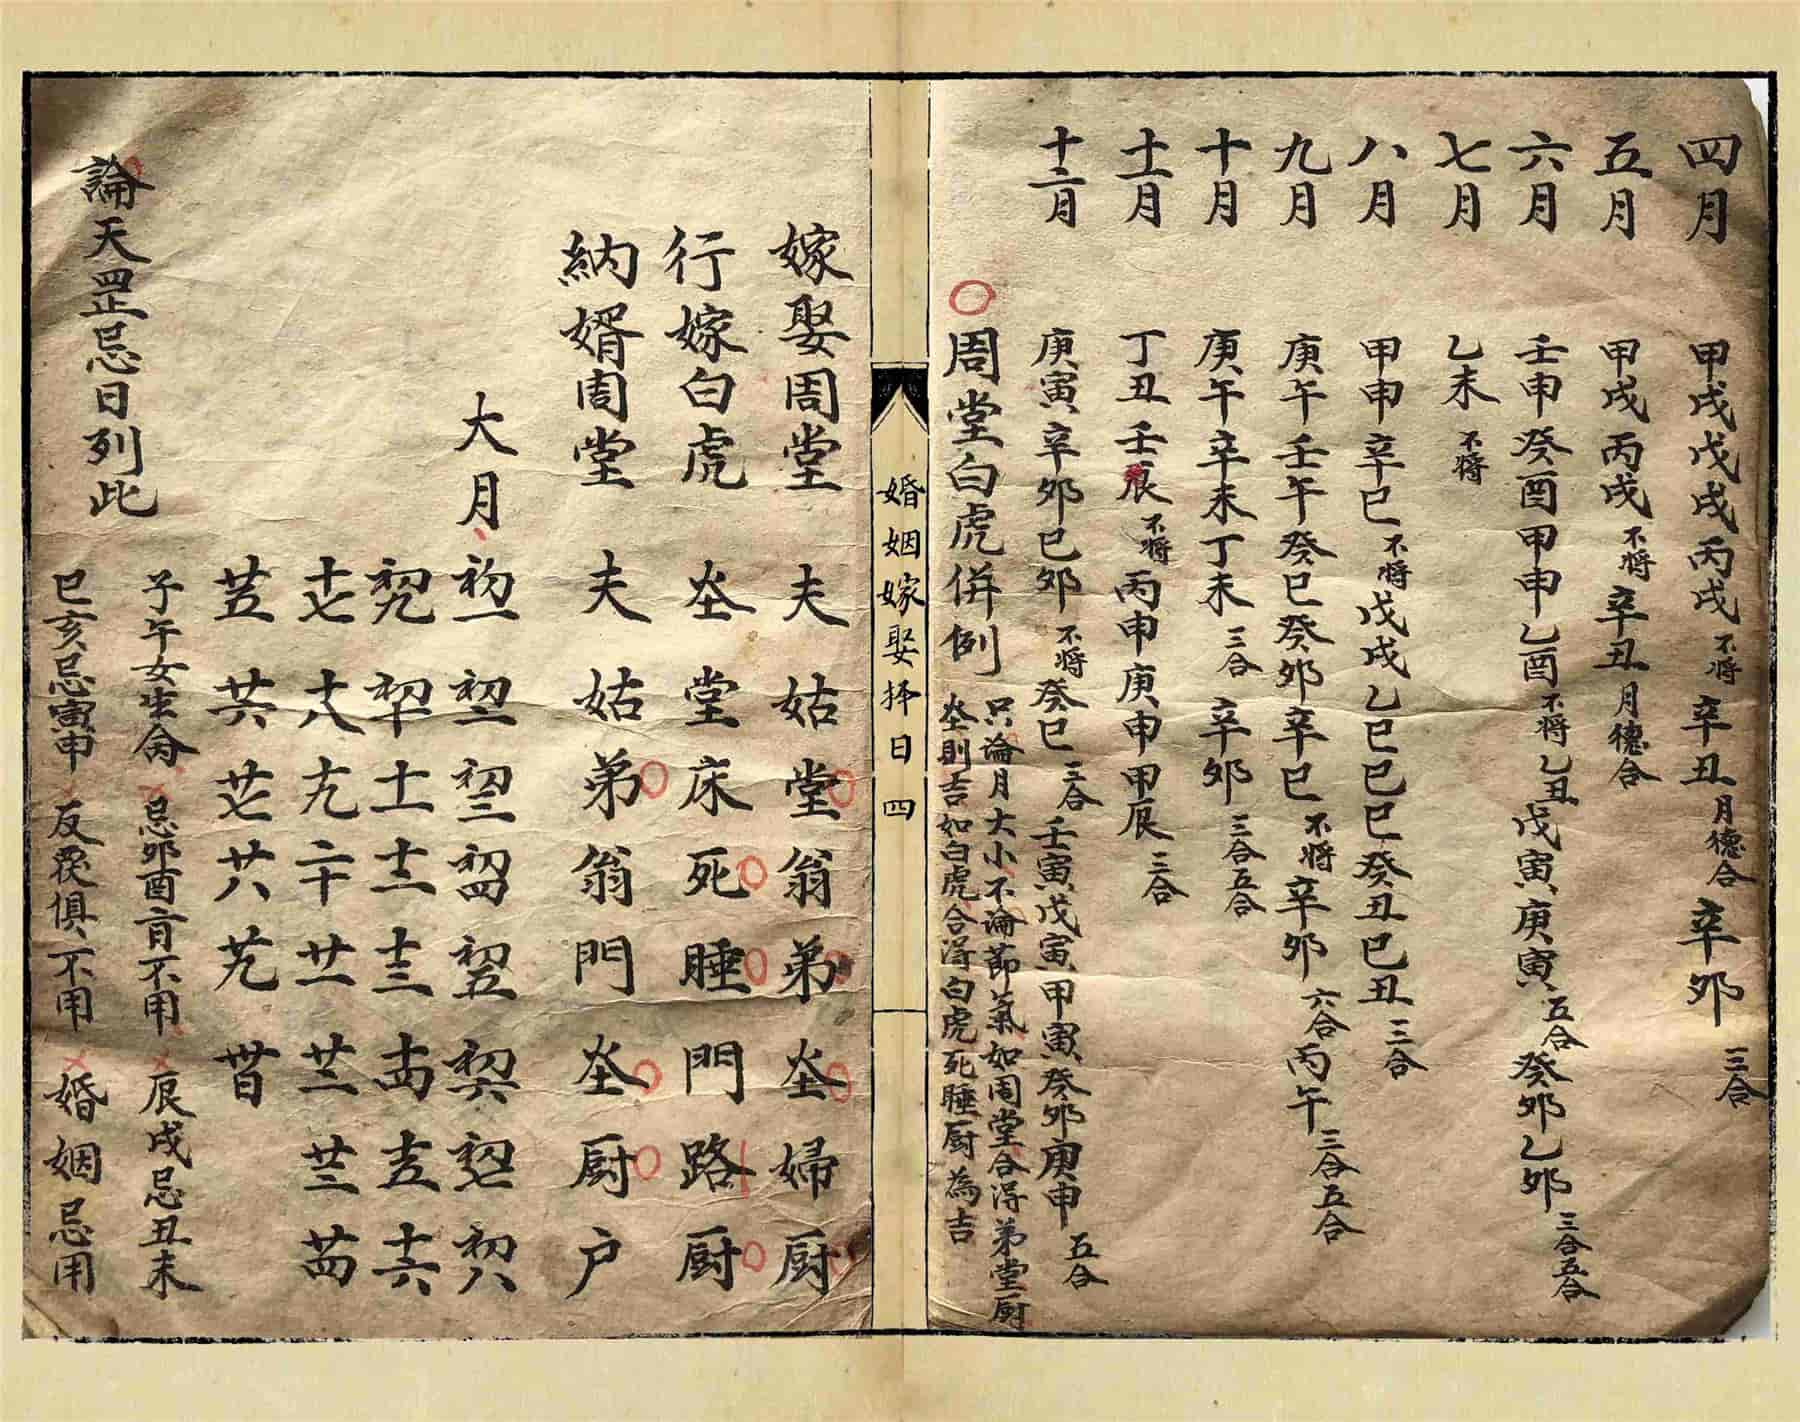 四月 甲戌戊戌丙戌不将辛丑月德合辛卯三合
五月 甲戌丙戌不将辛丑月德合
六月 壬申癸酉甲申乙酉不将乙丑戊寅庚寅五合癸卯乙卯三合五合
七月 乙未不将
八月 甲申辛巳不将戊戌乙巳己巳癸丑己丑三合
九月 庚午壬午癸巳癸卯辛巳不将辛卯六合丙午三合五合
十月 庚午辛未丁未三合辛卯三合五合
十一月 丁丑壬辰不将丙申庚申甲辰三合
十二月 庚寅辛卯己卯不将癸巳三合壬寅戊寅甲寅癸卯庚申五合
周堂白虎併例
只論月大小不論節氣如周堂合得弟堂厨
坐則吉如白虎合得白虎死睡厨為吉
婚姻嫁娶择日 四
嫁娶周堂 夫姑堂翁弟坐婦厨
行嫁白虎 坐堂床死睡門路厨
納婿周堂 夫姑弟翁門坐厨户
大月 初一初二初三初四初五初六初七初八
初九初十十一十二十三十四十五十六
十七十八十九二十廿一廿二廿三廿四
廿五廿六廿七廿八廿九卅日
論天罡忌日列此
子午女生命忌卯酉盲不用辰戌忌丑未
巳亥忌寅申反覆俱不用婚姻忌用